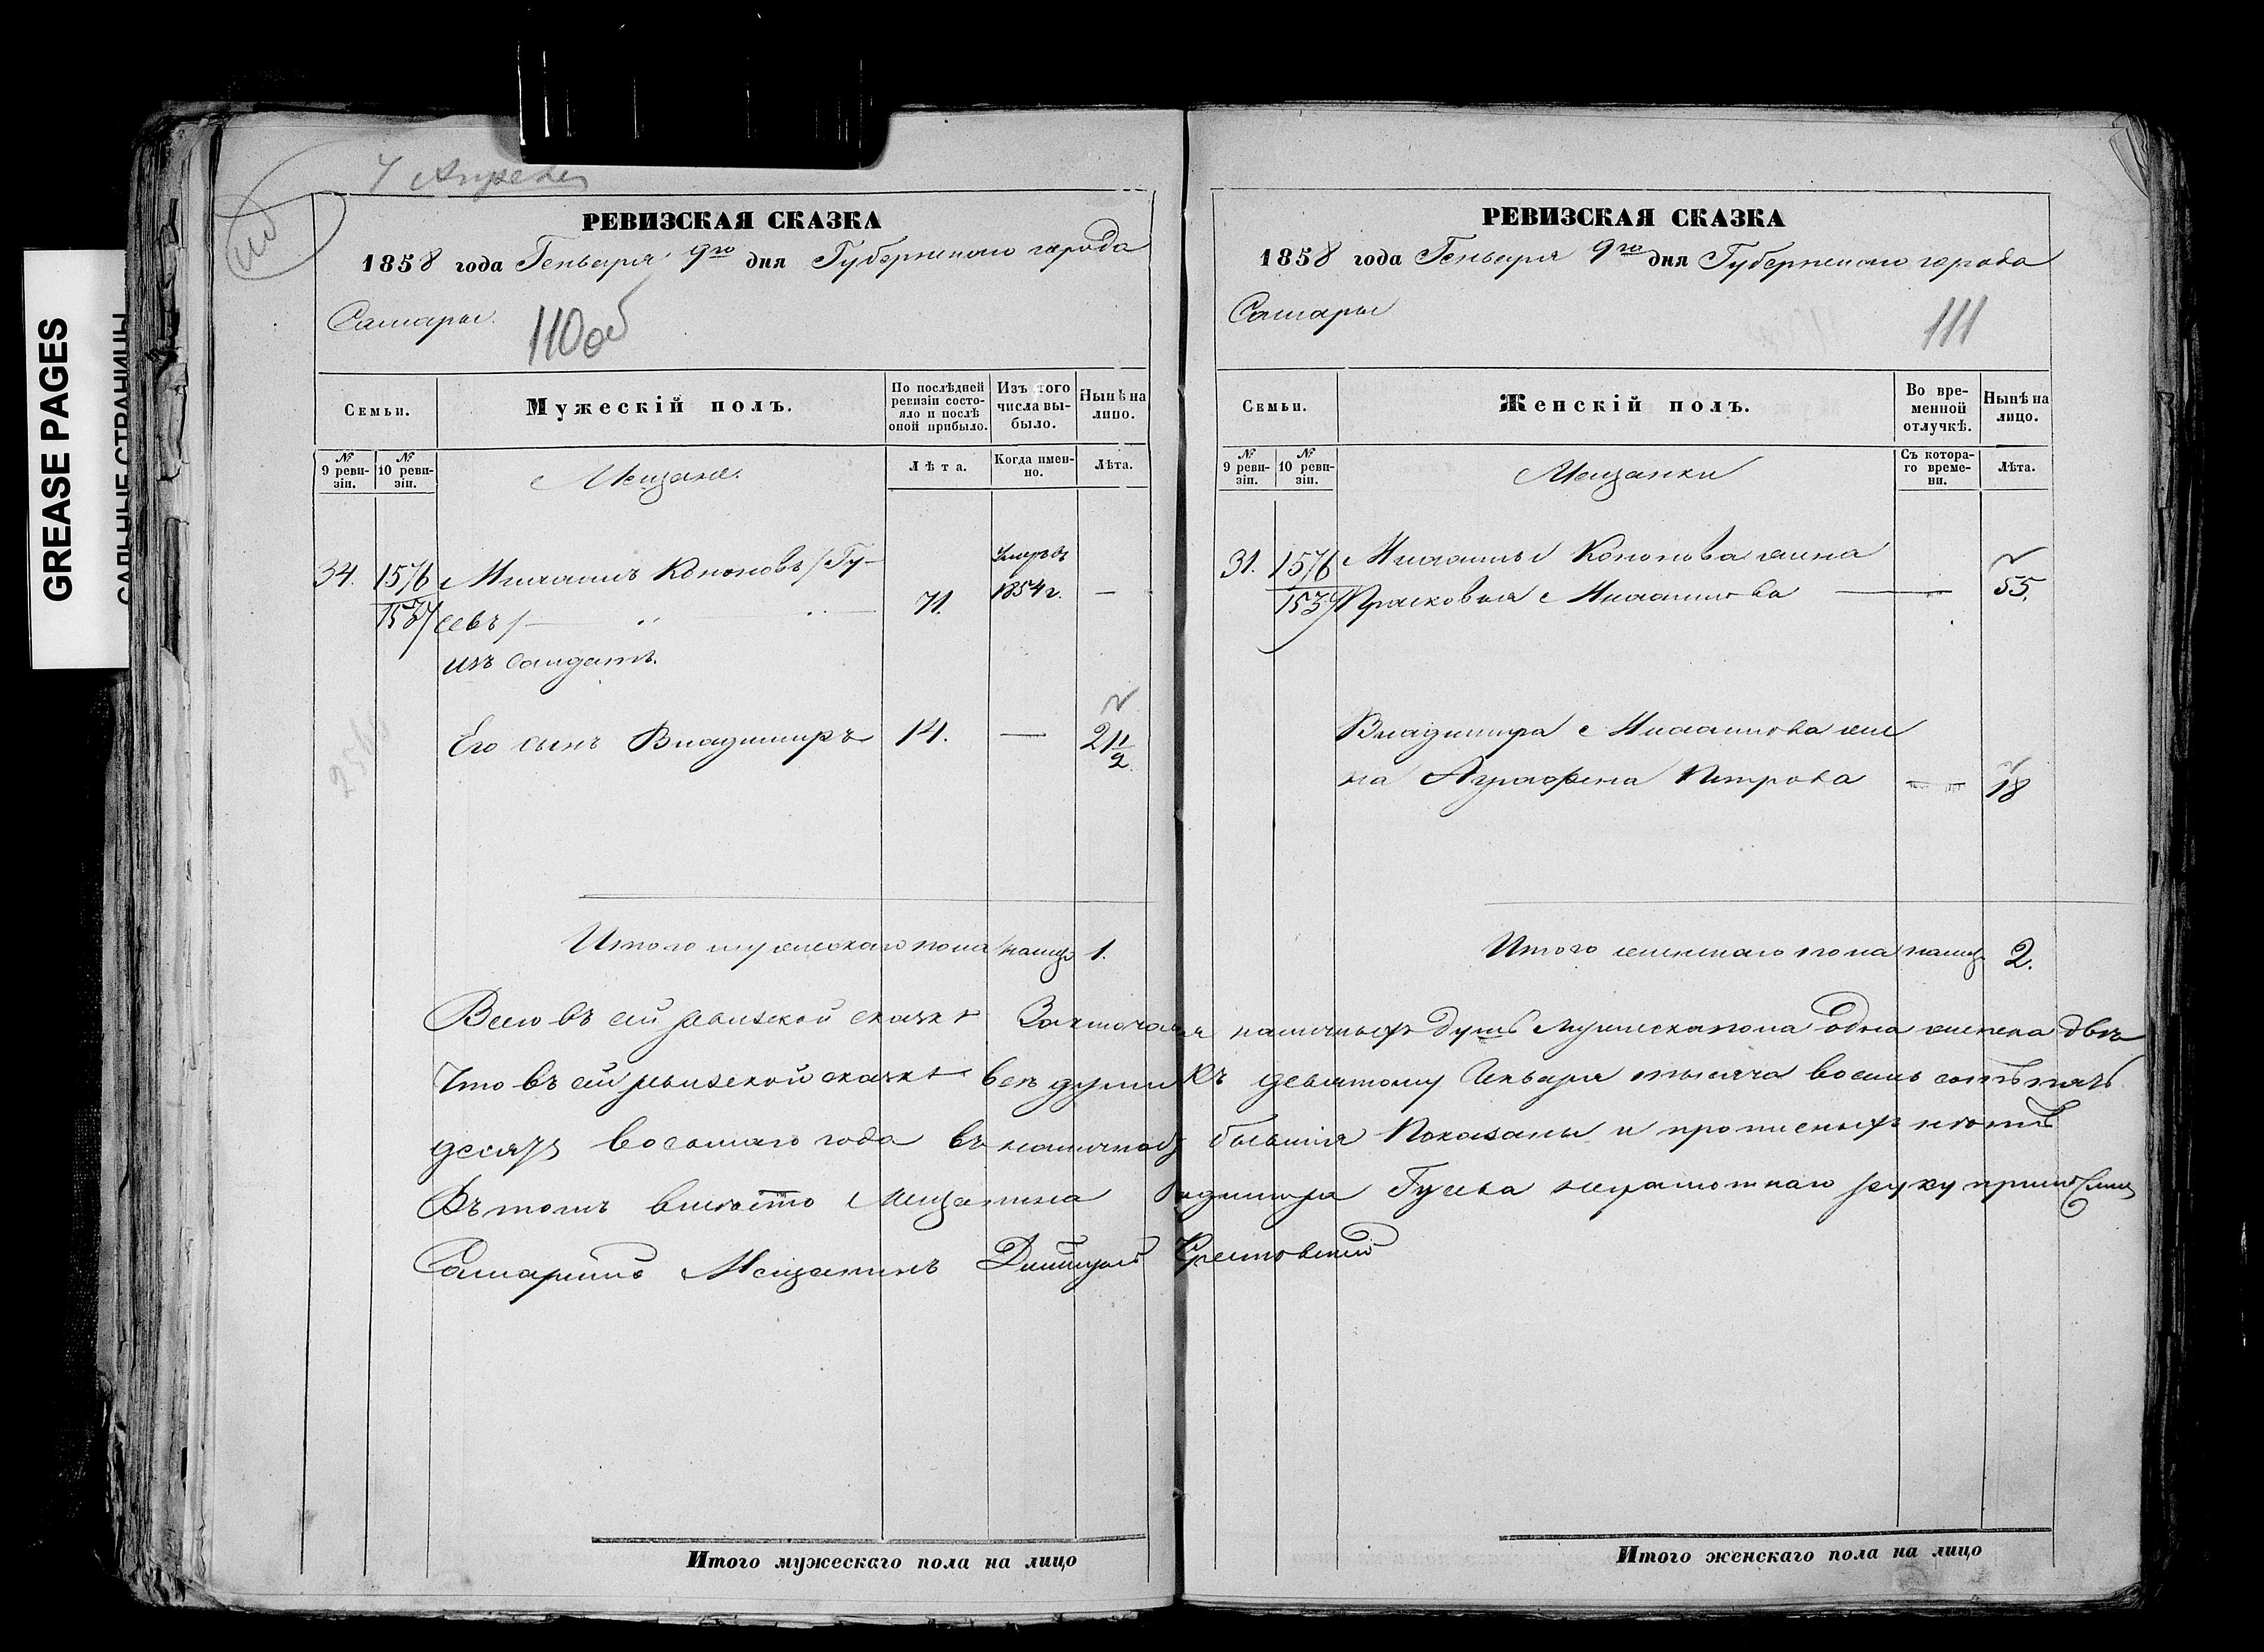 GREASE PAGES
САЛЬНЫЕ СТРАНИЦЫ
4 Апреля
РЕВИЗСКАЯ СКАЗКА
1858 года Генваря 9го дня Губернскаго города
Самары.
110 об
Семьи.
Мужескій полъ.
По послѣдней ревизіи состояло и послѣ оной прибыло.
Изъ того числа выбыло.
Нынѣ на лицо.
№ 9 ревизіи.
№ 10 ревизіи.
Мещане.
Лѣта.
Когда именно.
Лѣта.
34. 1576 Кононовъ /Гу- Умеръ въ
1537 севъ/ 71. 1854 г. —
изъ солдатъ.
Его сынъ Владимиръ 14. — 21 1/2
Итого мужескаго пола налицо 1.
РЕВИЗСКАЯ СКАЗКА
1858 года Генваря 9го дня Губернскаго города
Самары
111
Семьи.
Женскій полъ.
Во временной отлучкѣ.
Нынѣ на лицо.
№ 9 ревизіи.
№ 10 ревизіи.
Мещанки
Съ котораго времени.
Лѣта.
31. 1576 Кононова жена
1537 Прасковья — 55.
Владимира жe
на Аграфена Петрова — 18
Итого женскаго пола налицо 2.
Всего въ сей ревизской сказкѣ Заключается наличныхъ душъ мужеска пола одна женска двѣ
Что въ сей ревизской сказкѣ всѣ души къ девятому Генваря тысяча восемь сотъ пять
десятъ восьмаго года въ наличность бывшія Показаны и прописныхъ нѣтъ
Въ томъ вместо Мещанина Владимира Гусева неграмотнаго руку приложилъ
Самарский Мещанинъ Дмитрий
Итого мужескаго пола на лицо
Итого женскаго пола на лицо